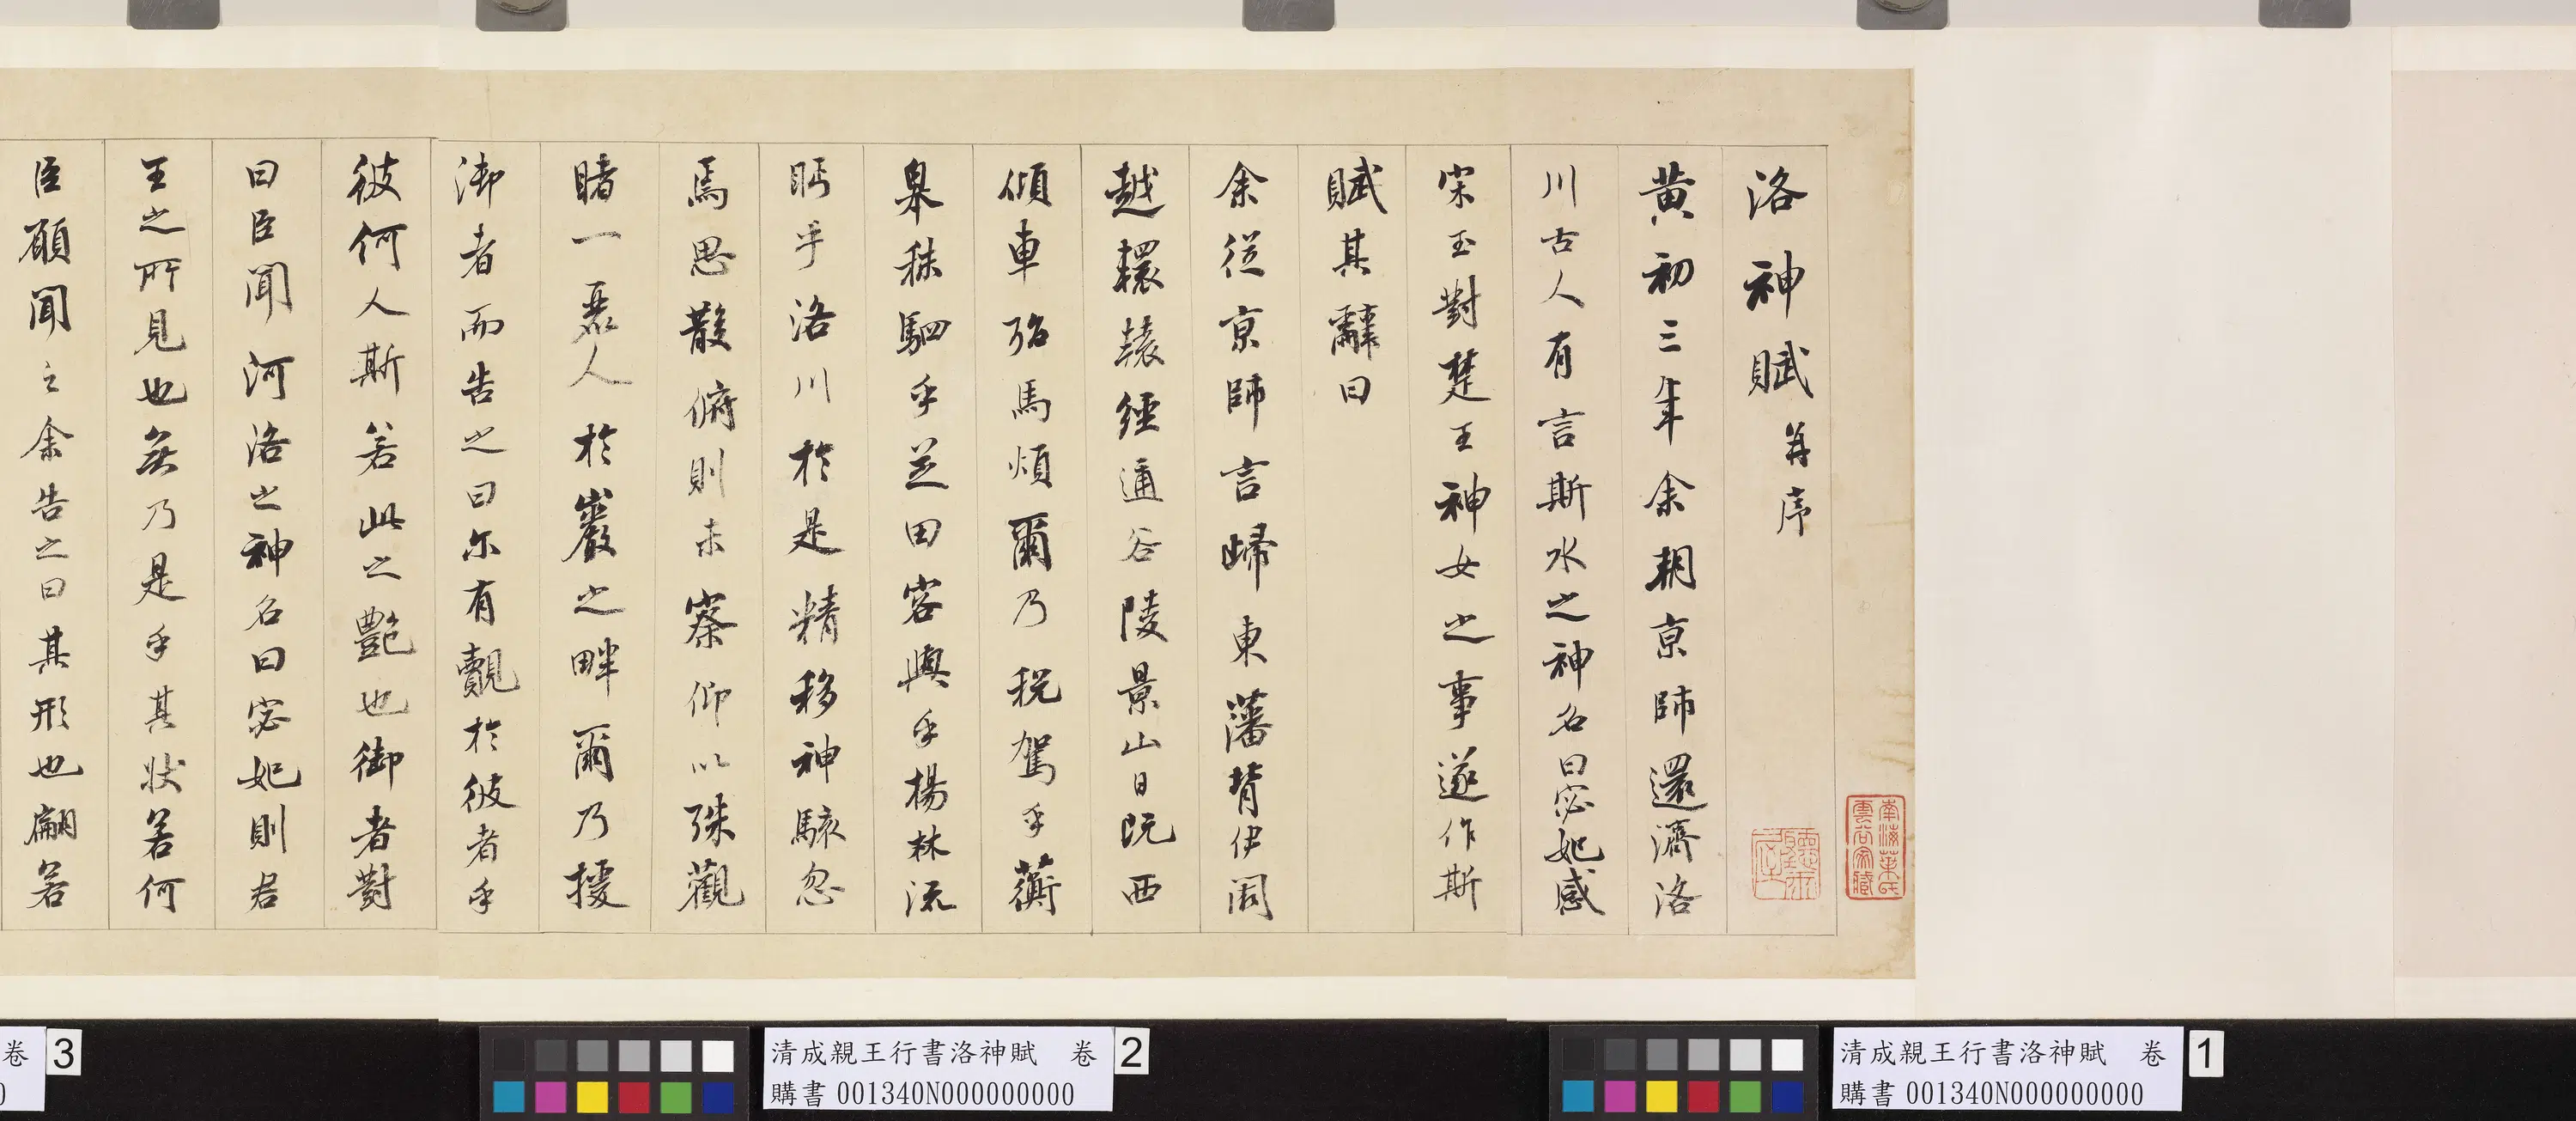 洛神賦并序
黃初三年余朝京師還濟洛
川古人有言斯水之神名曰宓妃感
宋玉對楚王神女之事遂作斯
賦其辭曰
余從京師言歸東藩背伊闕
越轘轅經通谷陵景山日既西
傾車殆馬煩爾乃稅駕乎蘅
皋秣駟乎芝田容與乎楊林流
眄乎洛川於是精移神駭忽
焉思散俯則未察仰以殊觀
睹一麗人於巖之畔爾乃援
御者而告之曰尔有覿於彼者乎
彼何人斯若此之艷也御者對
曰臣聞河洛之神名曰宓妃則君
王之所見也無乃是乎其狀若何
臣願聞之余告之曰其形也翩若
南海葉氏
雲谷家藏
清成親王行書洛神賦 卷
購書 001340N000000000
1
清成親王行書洛神賦 卷
購書 001340N000000000
2
卷
0
3